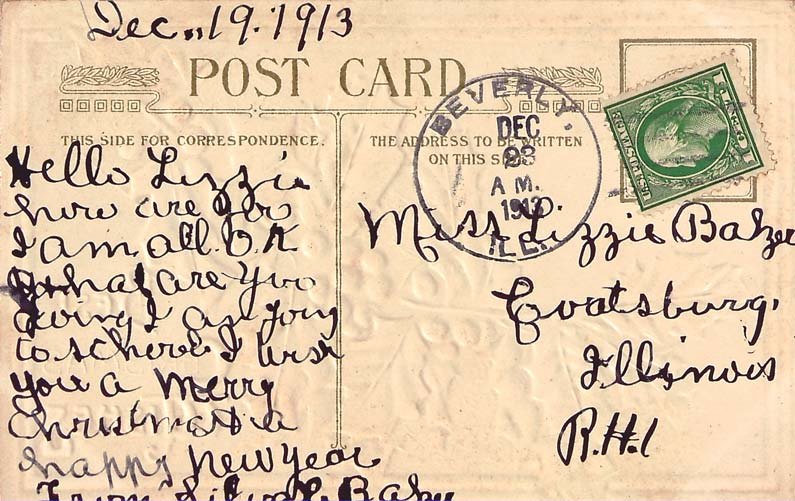 Dec. 19. 1913
POST CARD
THIS SIDE FOR CORRESPONDENCE.
THE ADDRESS TO BE WRITTEN
ON THIS SIDE
BEVERLY.
DEC
23
A M.
1913
ILL.
Hello Lizzie
how are you
I am all O.K
what are you
doing I am going
to school I wish
you a merry
Christmas a
happy new year
From
Miss Lizzie Balzer
Coatsburg,
Illinois
R.H.1